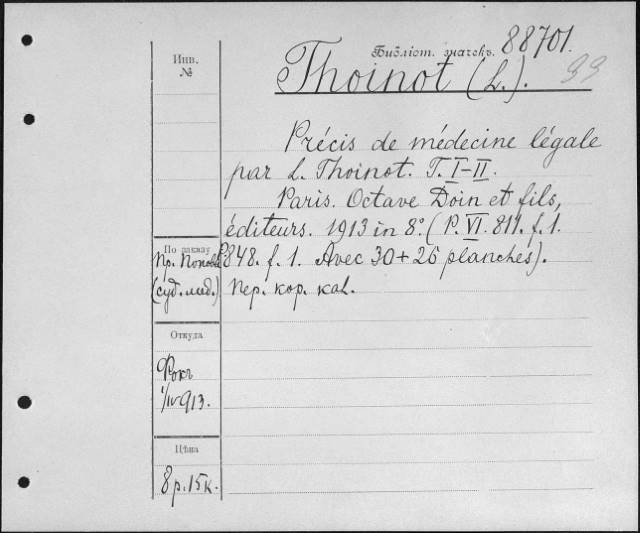 Библіот. значекъ. 88701.
33
Инв.
№
Thoinot (L.).
Précis de médecine légale
par L. Thoinot. T. I-II.
Paris. Octave Doin et fils,
éditeurs. 1913 in 8.° (P. VI. 811. f. 1.
848. f. 1. Avec 30 + 26 planches).
Пер. кор. кал.
По заказу
Пр. Попова
(суд. мед.)
Откуда
Фокъ
1/IV 913.
Цѣна
8 р. 15 к.